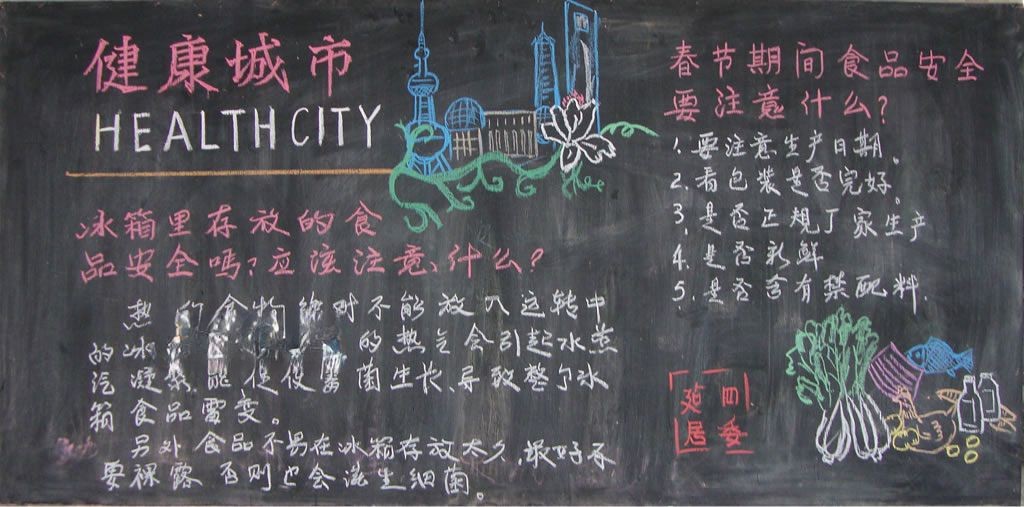 健康城市
HEALTH CITY
冰箱里存放的食
品安全吗?应该注意什么?
热的食物绝对不能放入运转中
的冰 的热气会引起水蒸
汽凝 能促使 菌生长,导致整个冰
箱食品霉变。
另外食品不易在冰箱存放太久,最好不
要裸露否则也会滋生细菌。
春节期间食品安全
要注意什么?
1.要注意生产日期。
2.看包装是否完好。
3.是否正规厂家生产
4.是否新鲜
5.是否含有禁配料.
延四
居委